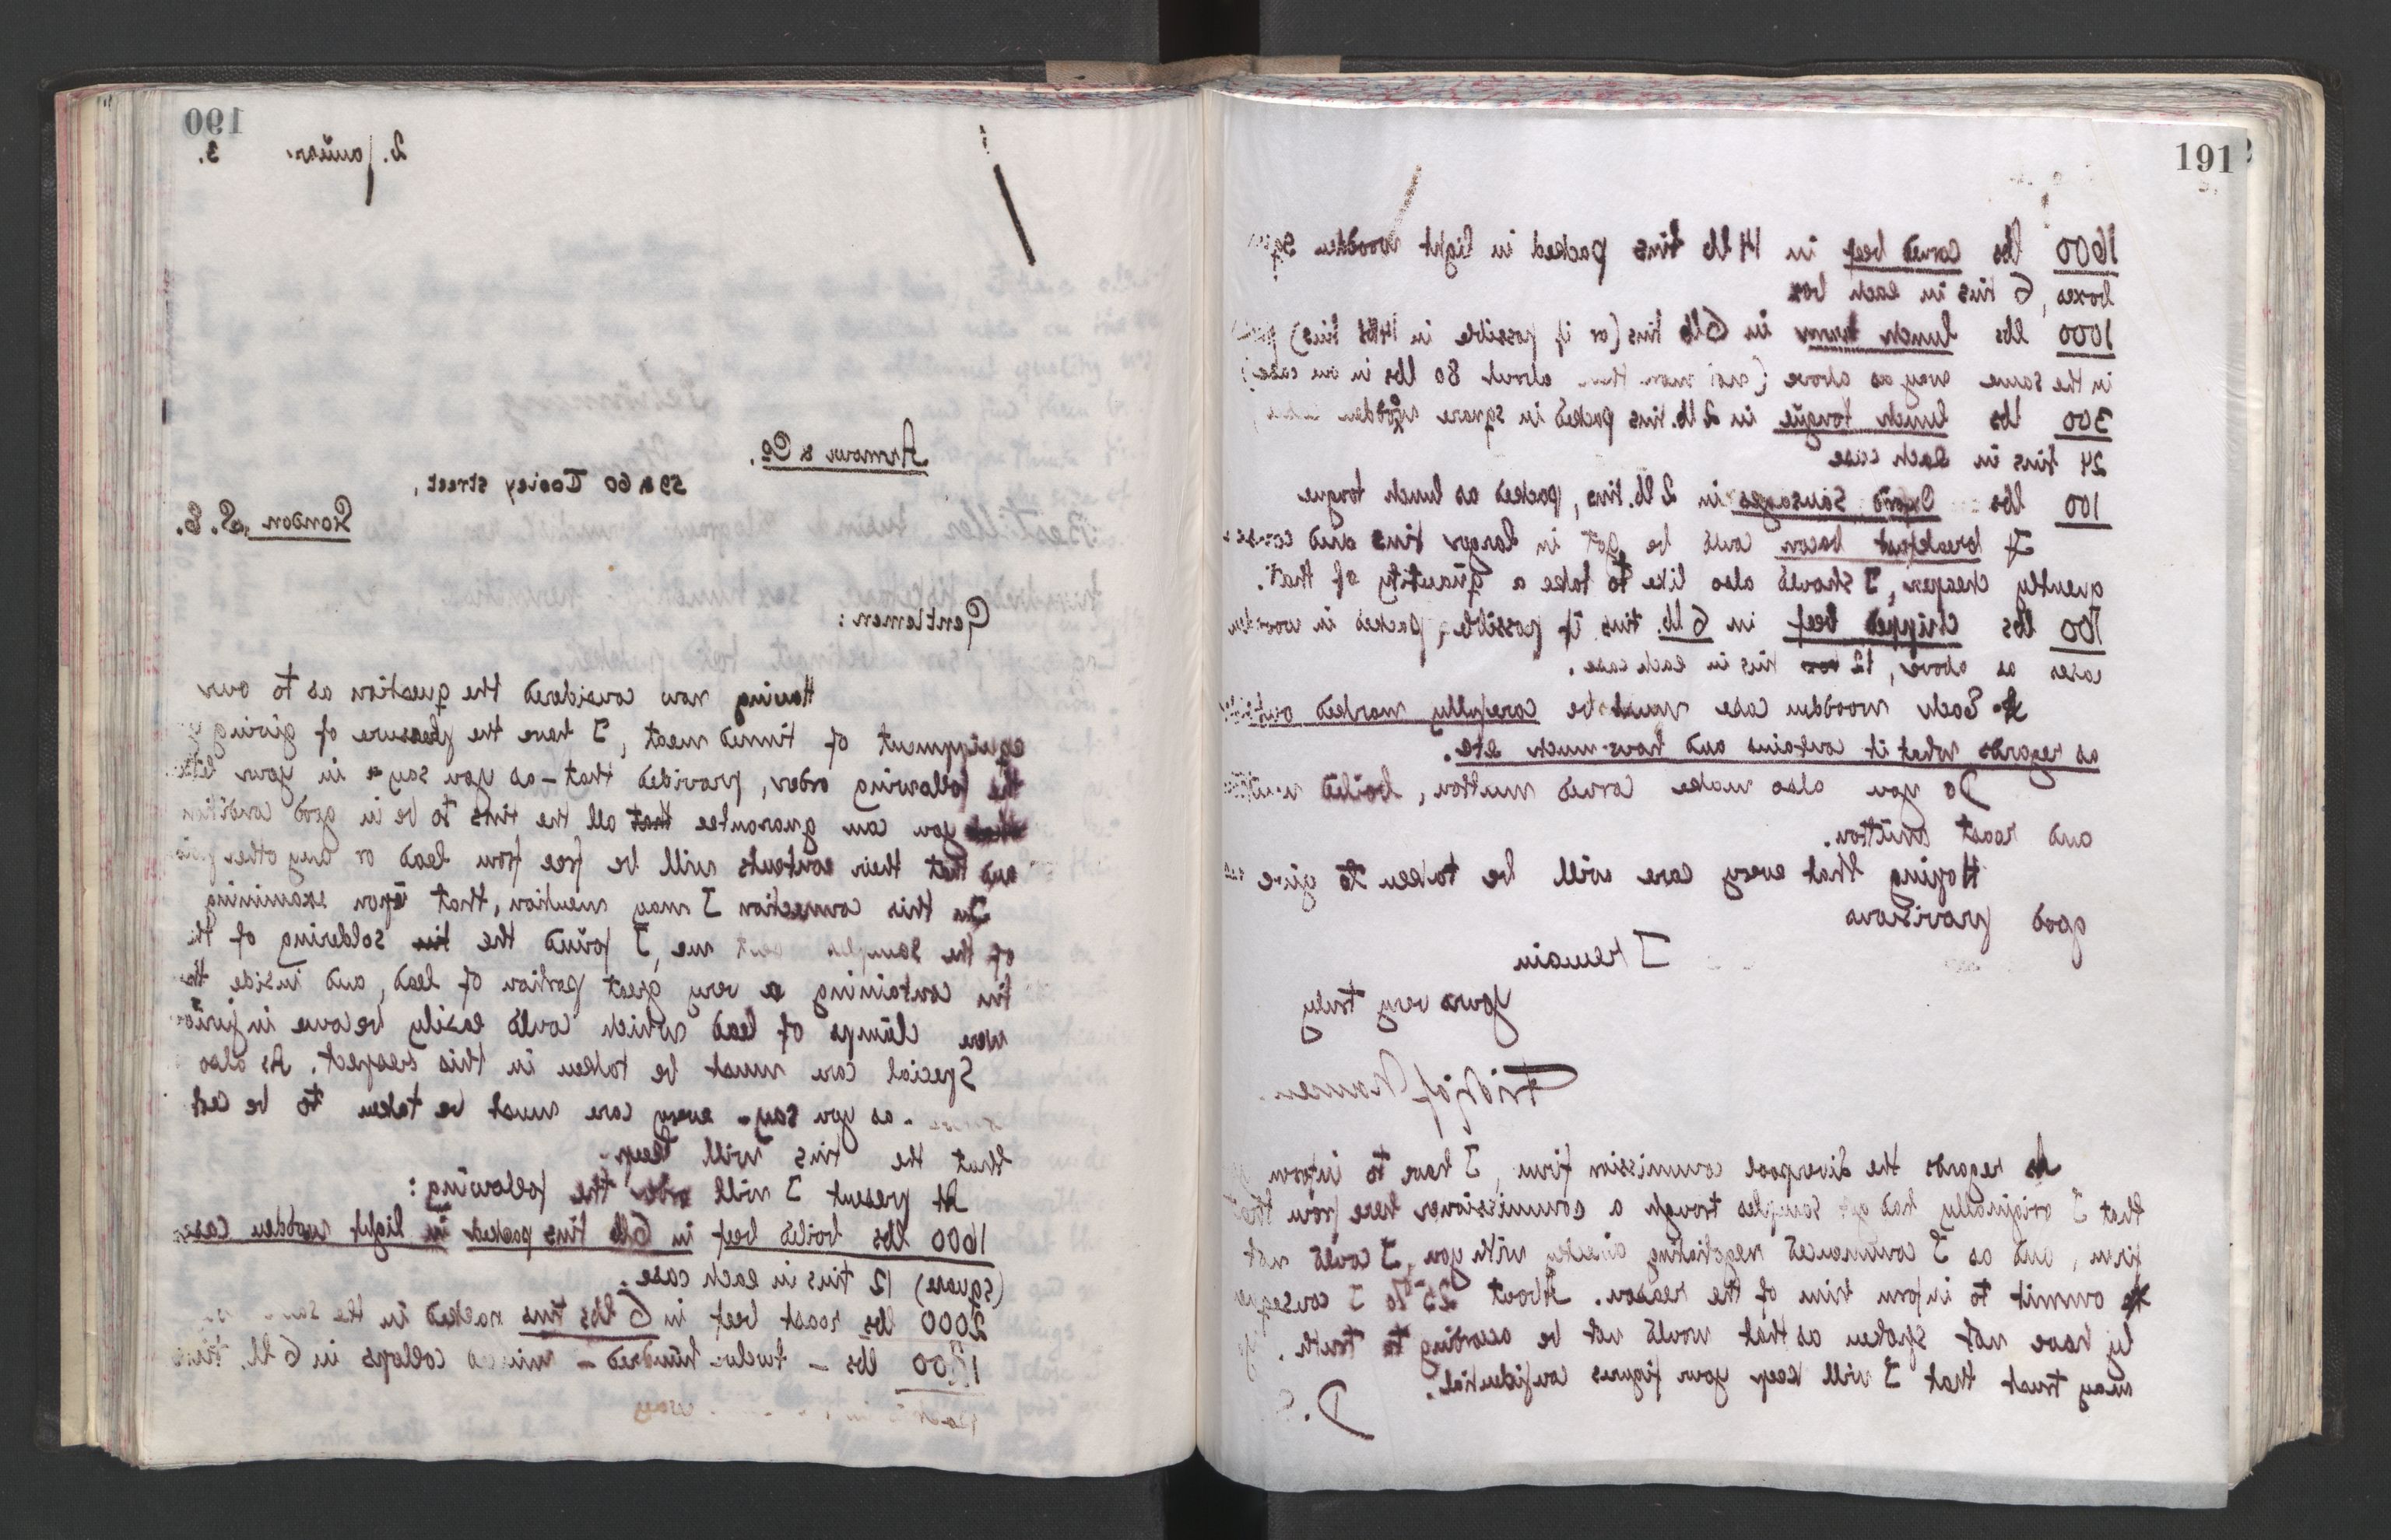 190
2. Januar. 3.
Armour & Co.
59 & 60 Tooley street,
London, S. E.
Gentlemen:
Having now considered the question as to our
equippment of tinned meat, I have the pleasure of giving
the following order, provided that – as you say – in your
you can guarantee that all the tins to be in good condition
and that their contents will be free from lead or any other
In this connection I may mention, that upon examining
of the samples sent me, I found the tin soldering of the
tin containing a very great portion of lead, and inside the
were clumps of lead which could easily become
Special care must be taken in this respect. As also
– as you say – every care must be taken to be
that the tins will keep.
At present I will order the following:
1600 lbs boiled beef in 6lb tins packed in light wooden cases
(square) 12 tins in each case.
2000 lbs roast beef in 6 lbs tins packed in the same
1200 lbs – twelve hundred – minced collops in 6 lb. tins
way
191
1600 lbs corned beef in 14 lb tins packed in light wooden
boxes, 6 tins in each box
1000 lbs lunch ham in 6lb tins (or if possible in 14lbs tins)
in the same way as above (not more than about 80 lbs in one case)
300 lbs lunch tongue in 2 lb. tins packed in square wooden
24 tins in each case
100 lbs Oxford sausages in 2 lb. tins, packed as lunch tongue
If breakfast bacon could be got in larger tins and
quently cheaper, I should also like to take a quantity of that.
700 lbs chipped beef in 6 lb. tins if possible, packed in wooden
cases as above, 12 tins in each case.
Each wooden case must be carefully marked outside
as regards what it contains and how much etc.
Do you also make corned mutton, boiled mutton
and roast mutton.
Hoping that every care will be taken to give
good provisions
I remain
yours very truly
Fridtjof Nansen.
As regards the Liverpool commission firm, I have to inform
that I originally had got samples trough a commissioner here from that
firm, and as I commenced negotiating directly with you, I could not
ommit to inform him of the reason. About 25% I conseque
ly have not spoken as that would not be according to truth.
may trust that I will keep your figures confidential.
D. S.